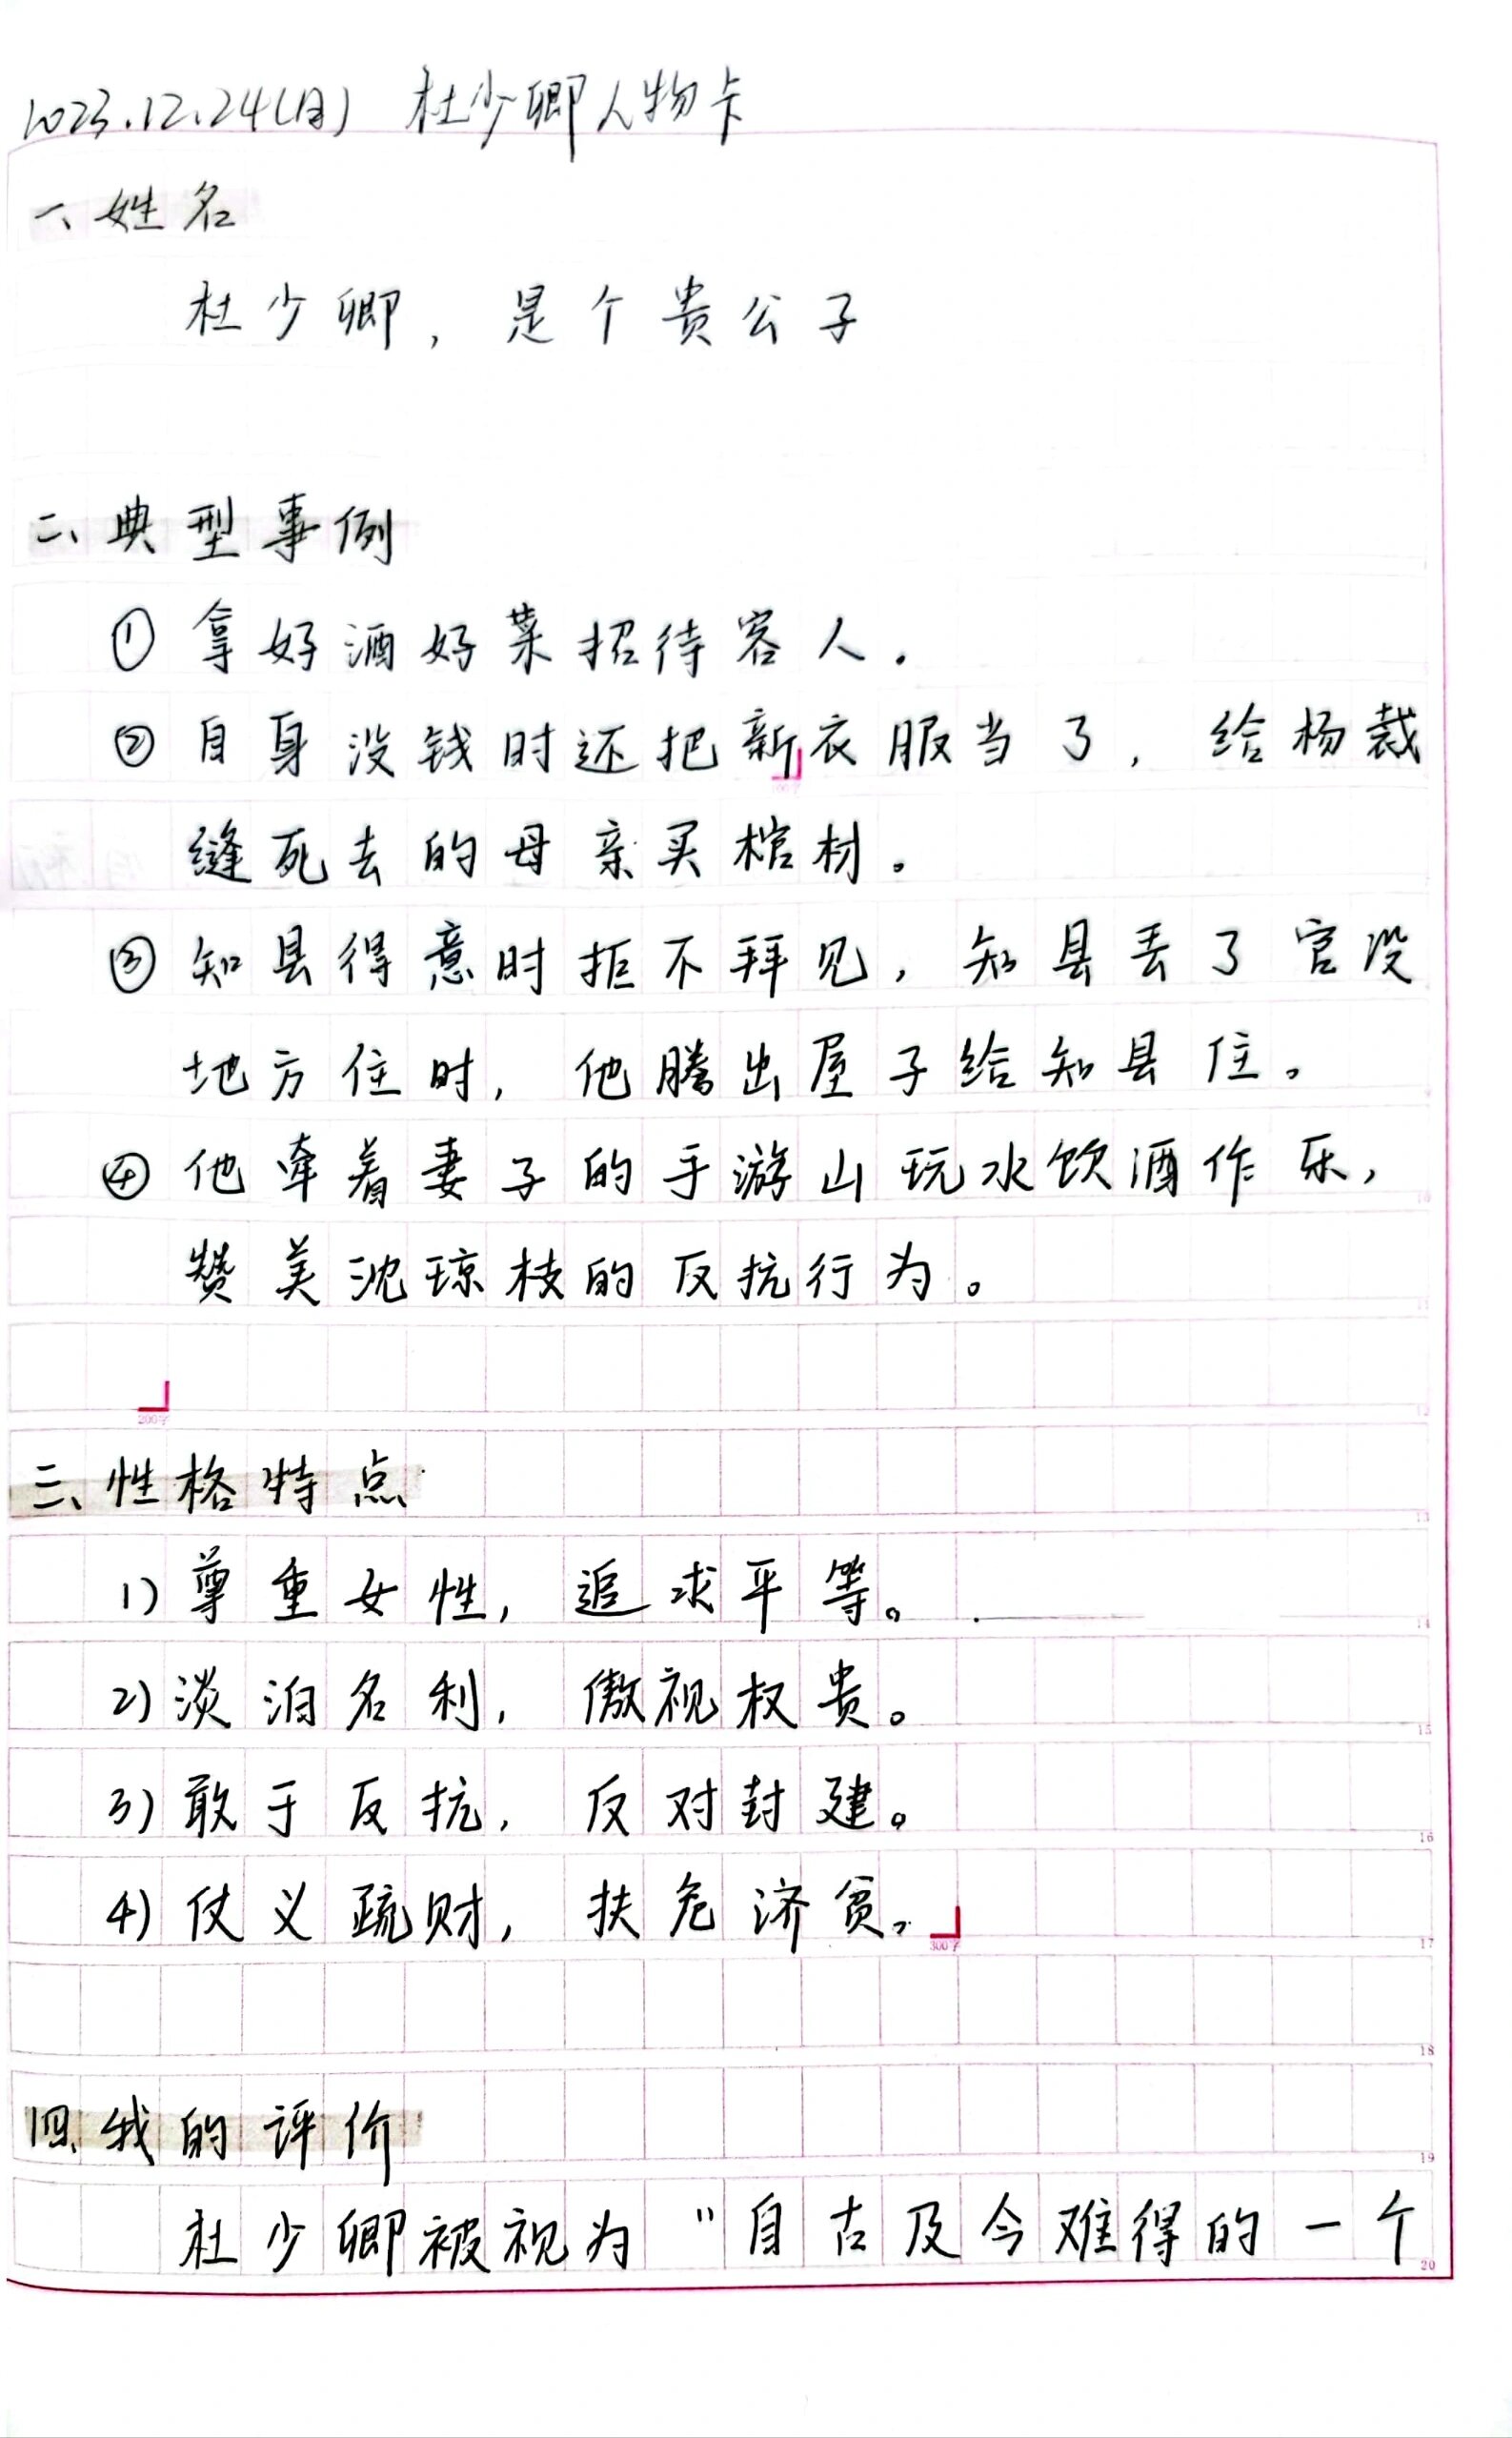 2023.12.24(日) 杜少卿人物卡
一、姓名
杜少卿，是个贵公子
二、典型事例
① 拿好酒好菜招待客人。
② 自身没钱时还把新衣服当了，给杨裁
缝死去的母亲买棺材。
③ 知县得意时拒不拜见，知县丢了官没
地方住时，他腾出屋子给知县住。
④ 他牵着妻子的手游山玩水饮酒作乐，
赞美沈琼枝的反抗行为。
200字
三、性格特点
1) 尊重女性，追求平等。
14
2) 淡泊名利，傲视权贵。
15
3) 敢于反抗，反对封建。
16
4) 仗义疏财，扶危济贫。
300字
17
18
四、我的评价
19
杜少卿被视为“自古及今难得的一个
20